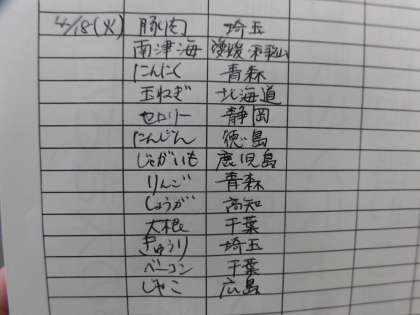 4/18(火) 豚肉 埼玉
南津海 愛媛 和歌山
にんにく 青森
玉ねぎ 北海道
セロリー 静岡
にんじん 徳島
じゃがいも 鹿児島
りんご 青森
しょうが 高知
大根 千葉
きゅうり 埼玉
ベーコン 千葉
じゃこ 広島